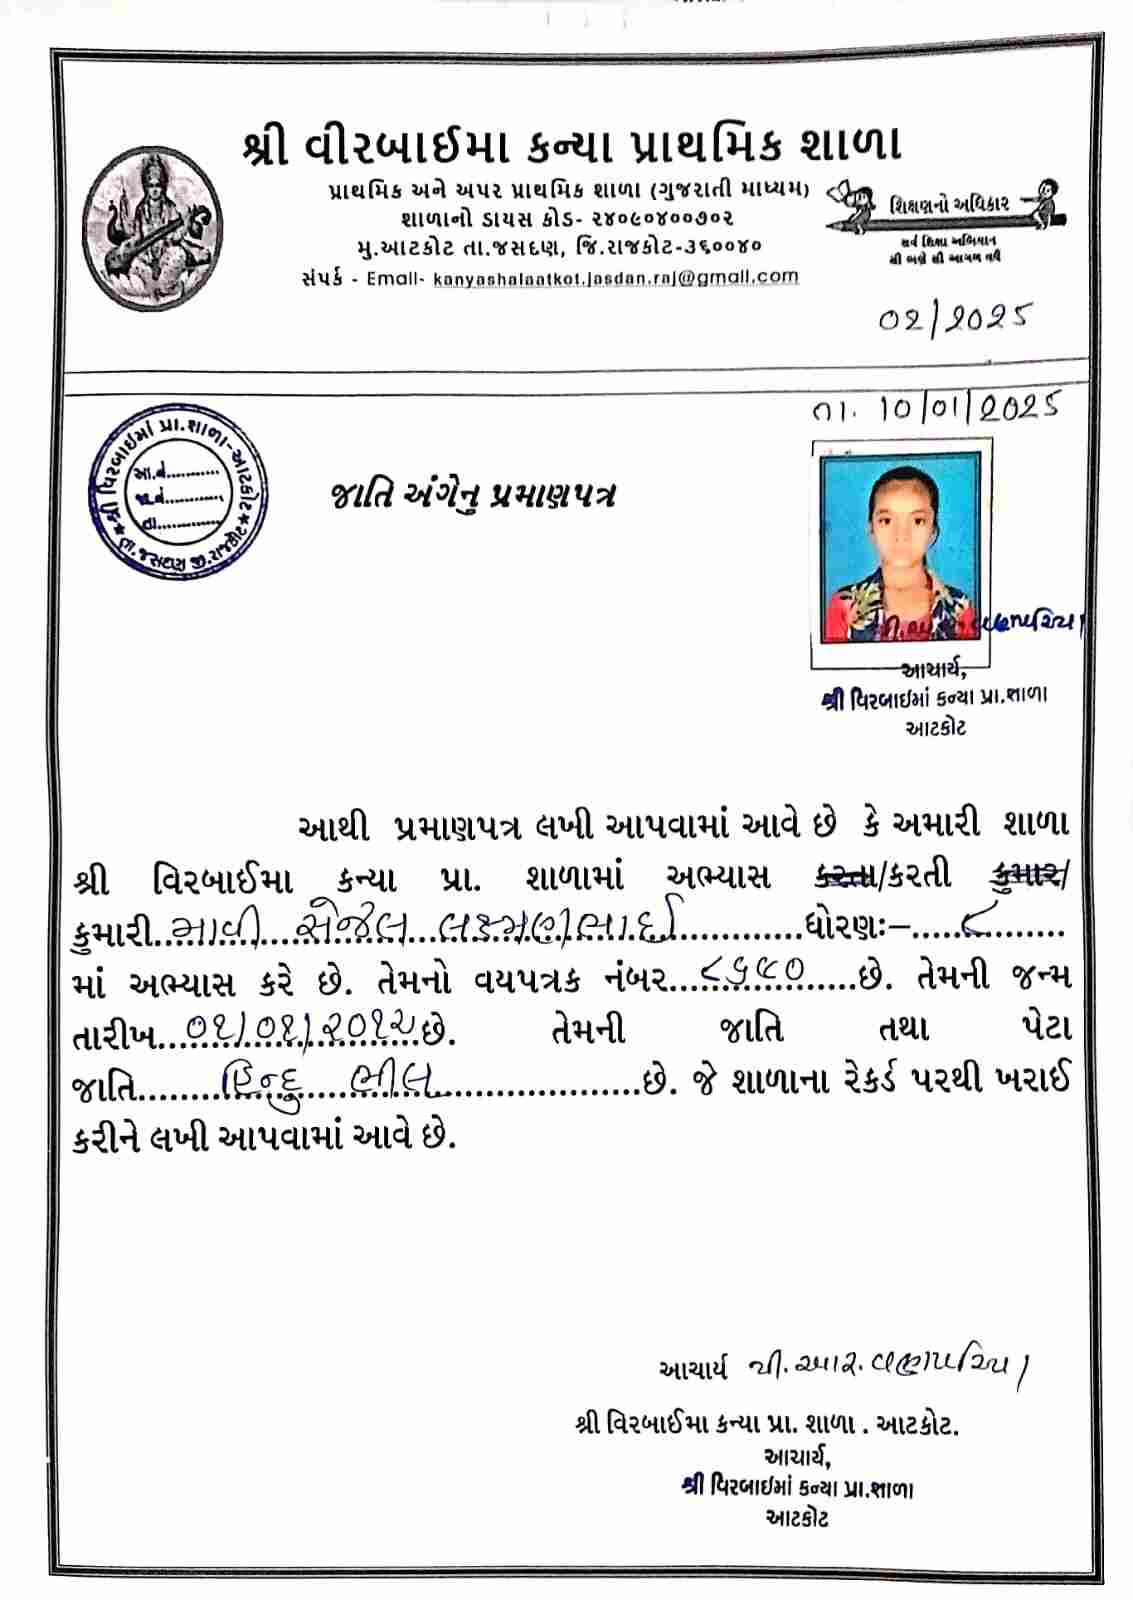 શ્રી વીરબાઈમા કન્યા પ્રાથમિક શાળા
પ્રાથમિક અને અપર પ્રાથમિક શાળા (ગુજરાતી માધ્યમ)
શાળાનો ડાયસ કોડ- ૨૪૦૯૦૪૦૦૭૦૨
મુ.આટકોટ તા.જસદણ, જિ.રાજકોટ-૩૬૦૦૪૦
સંપર્ક - Email- kanyashalaatkot.jasdan.raj@gmail.com
શિક્ષણનો અધિકાર
સર્વ શિક્ષા અભિયાન
સૌ ભણે સૌ આગળ વધે
02/2025
તા. 10/01/2025
શ્રી વિરબાઈમાં પ્રા.શાળા-આટકોટ
તા.જસદણ જી.રાજકોટ
આ.નં...........
જા.નં...........
તા.............
જાતિ અંગેનુ પ્રમાણપત્ર
વણપરિયા
આચાર્ય,
શ્રી વિરબાઈમાં કન્યા પ્રા.શાળા
આટકોટ
આથી પ્રમાણપત્ર લખી આપવામાં આવે છે કે અમારી શાળા
શ્રી વિરબાઈમા કન્યા પ્રા. શાળામાં અભ્યાસ કરતા/કરતી કુમાર/
કુમારી..માવી સેજલ લક્ષ્મણભાઈ............ધોરણઃ–.....૮........
માં અભ્યાસ કરે છે. તેમનો વયપત્રક નંબર...૮૬૯૦.....છે. તેમની જન્મ
તારીખ...૦૧/૦૧/૨૦૧૨છે. તેમની જાતિ તથા પેટા
જાતિ........હિન્દુ ભીલ....................છે. જે શાળાના રેકર્ડ પરથી ખરાઈ
કરીને લખી આપવામાં આવે છે.
આચાર્ય વી.આર.વણપરિયા
શ્રી વિરબાઈમા કન્યા પ્રા. શાળા . આટકોટ.
આચાર્ય,
શ્રી વિરબાઈમાં કન્યા પ્રા.શાળા
આટકોટ